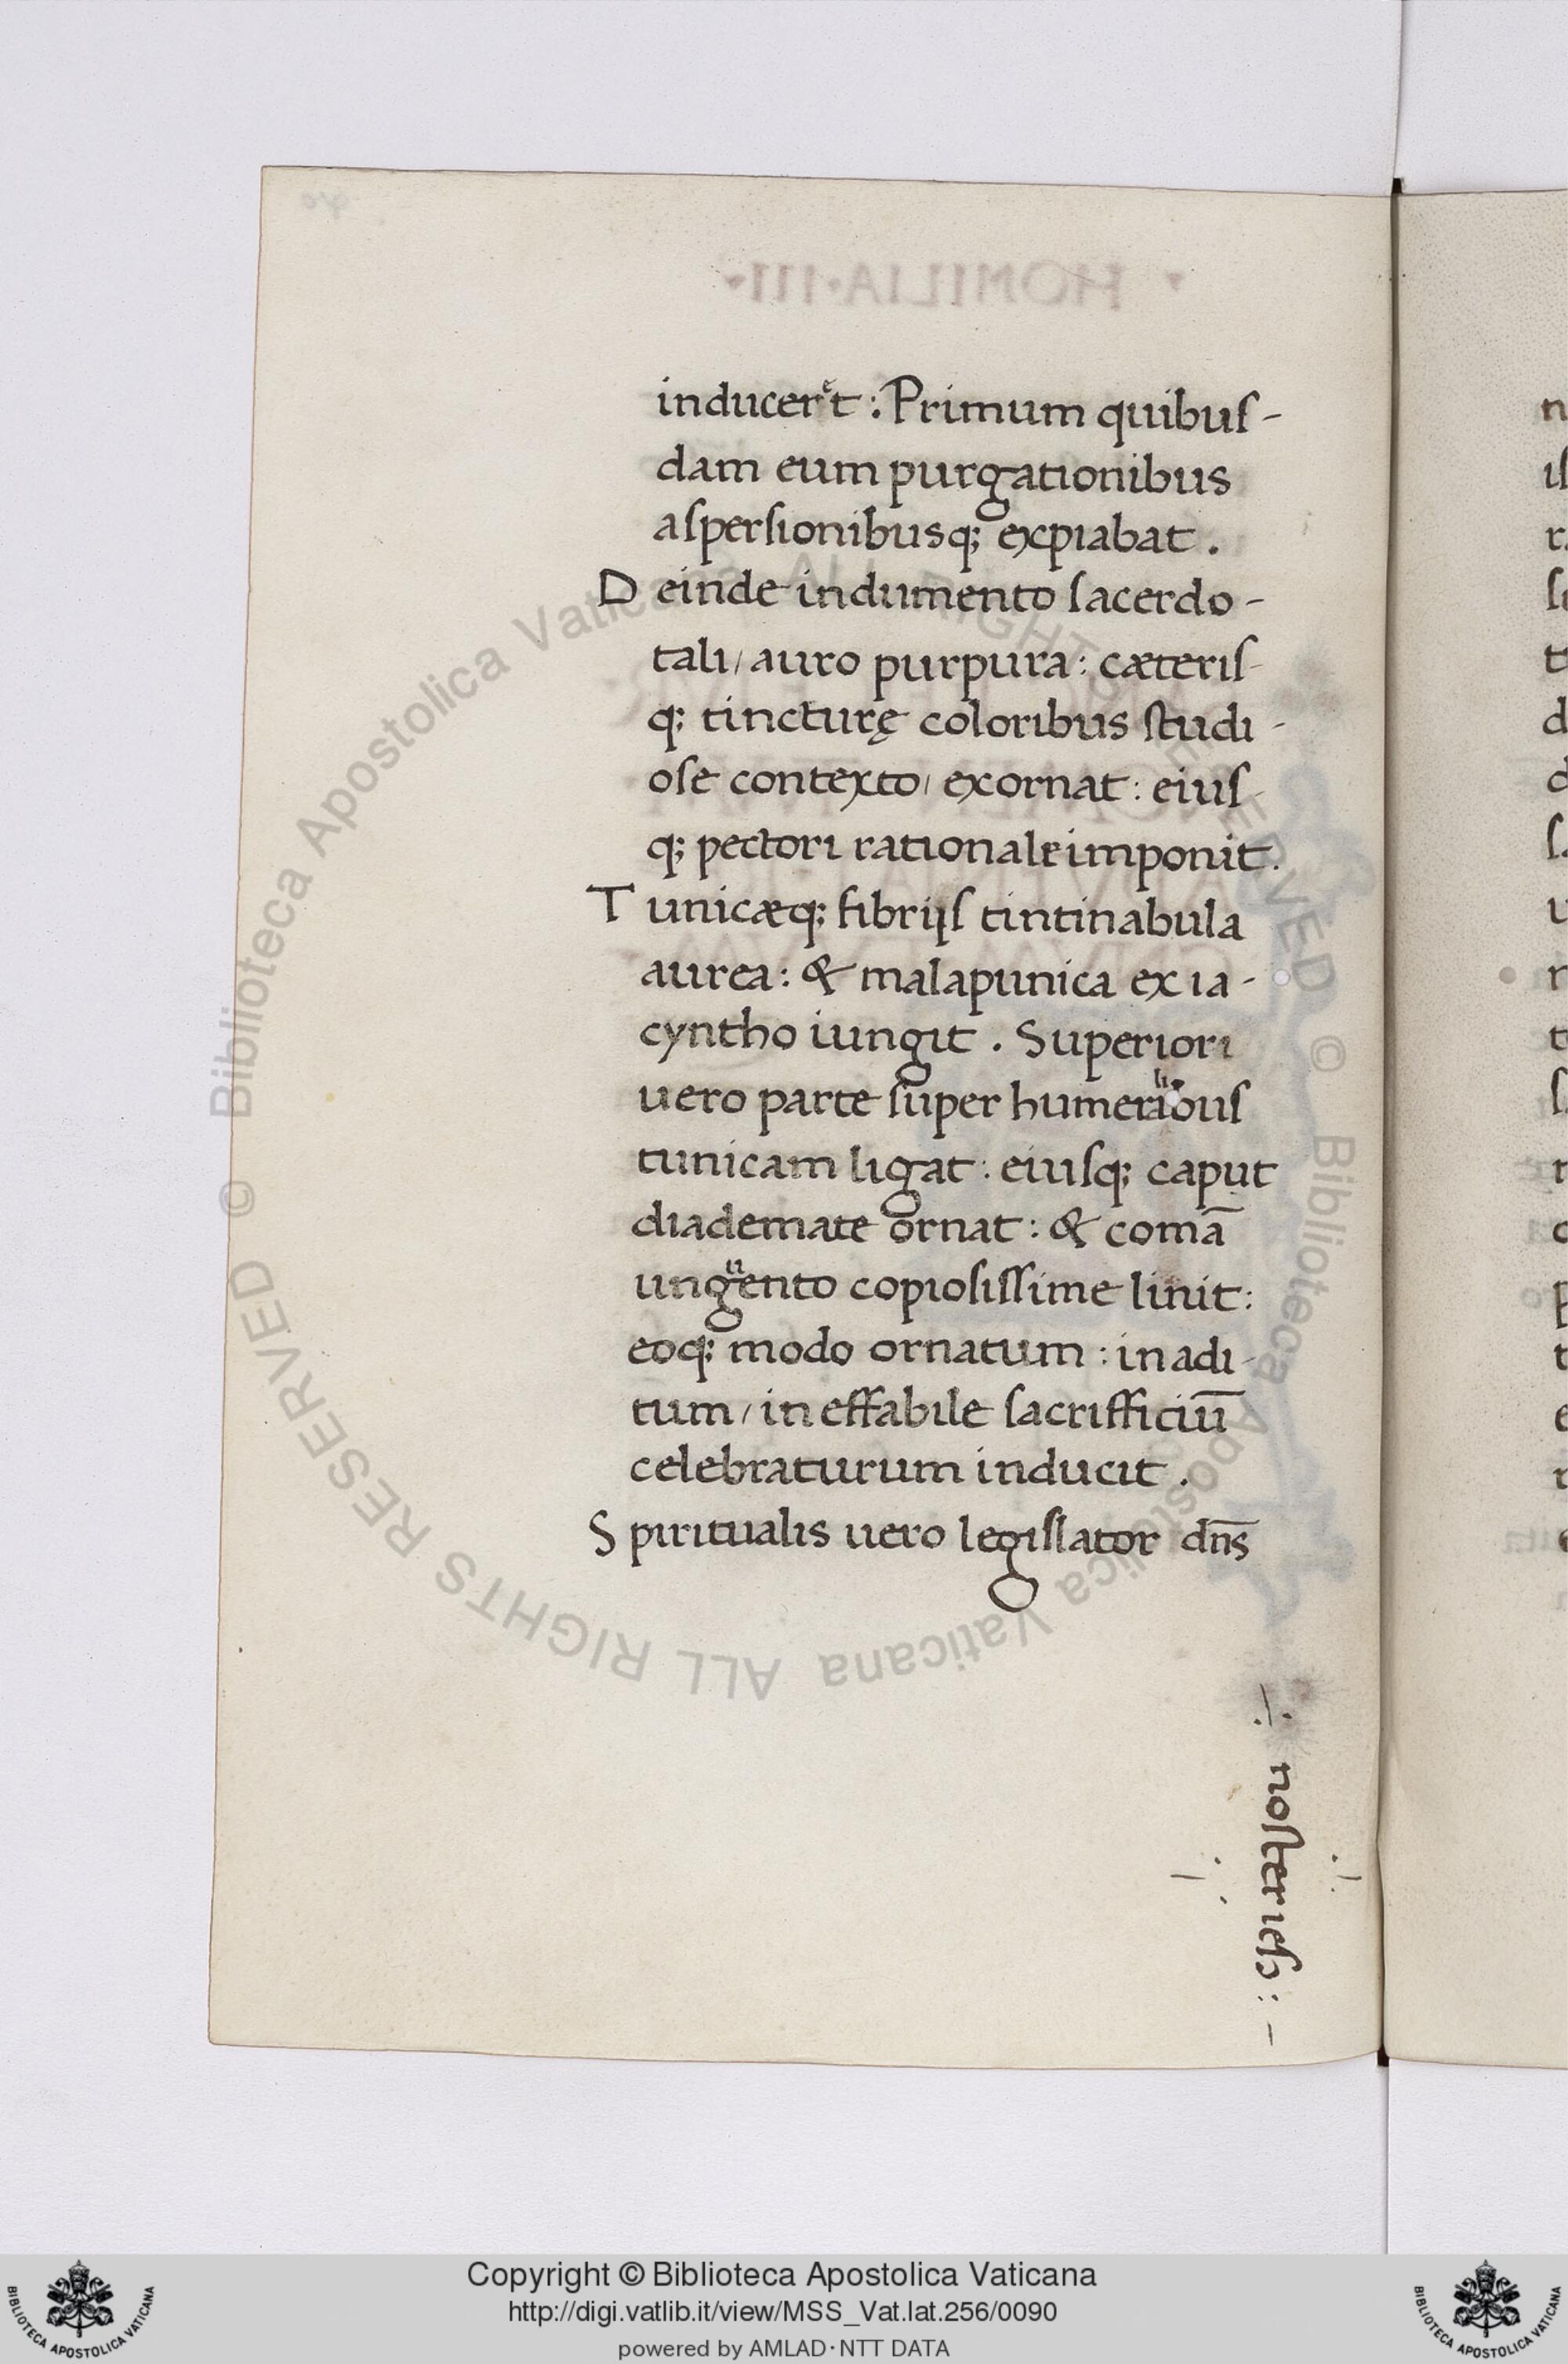 inducerět : Primum quibuſ-
dam eum purgationibus
aſperſionibusq; expiabat .
Deinde indumento ſacerdo-
tali/ auro purpura : cæteriſ-
q; tincturę coloribus ſtudi-
oſe contexto/ exornat : eiuſ-
q; pectori rationale imponit.
Tunicæq; fibrijſ tintinabula
aurea : & malapunica ex ia-
cyntho iungit . Superiori
uero parte ſuper humeralibuſ
tunicam ligat : eiuſq; caput
diademate ornat : & comā
unguento copioſiſſime linit :
eoq; modo ornatum : in adi-
tum/ in effabile ſacrifficiū
celebraturum inducit .
Spiritualis uero legiſlator dn̄s
noſter ieſ
HOMILIA · III ·
Copyright © Biblioteca Apostolica Vaticana
http://digi.vatlib.it/view/MSS_Vat.lat.256/0090
powered by AMLAD · NTT DATA
BIBLIOTECA APOSTOLICA VATICANA
BIBLIOTECA APOSTOLICA VATICANA
© Biblioteca Apostolica Vaticana ALL RIGHTS RESERVED © Biblioteca Apostolica Vaticana ALL RIGHTS RESERVED